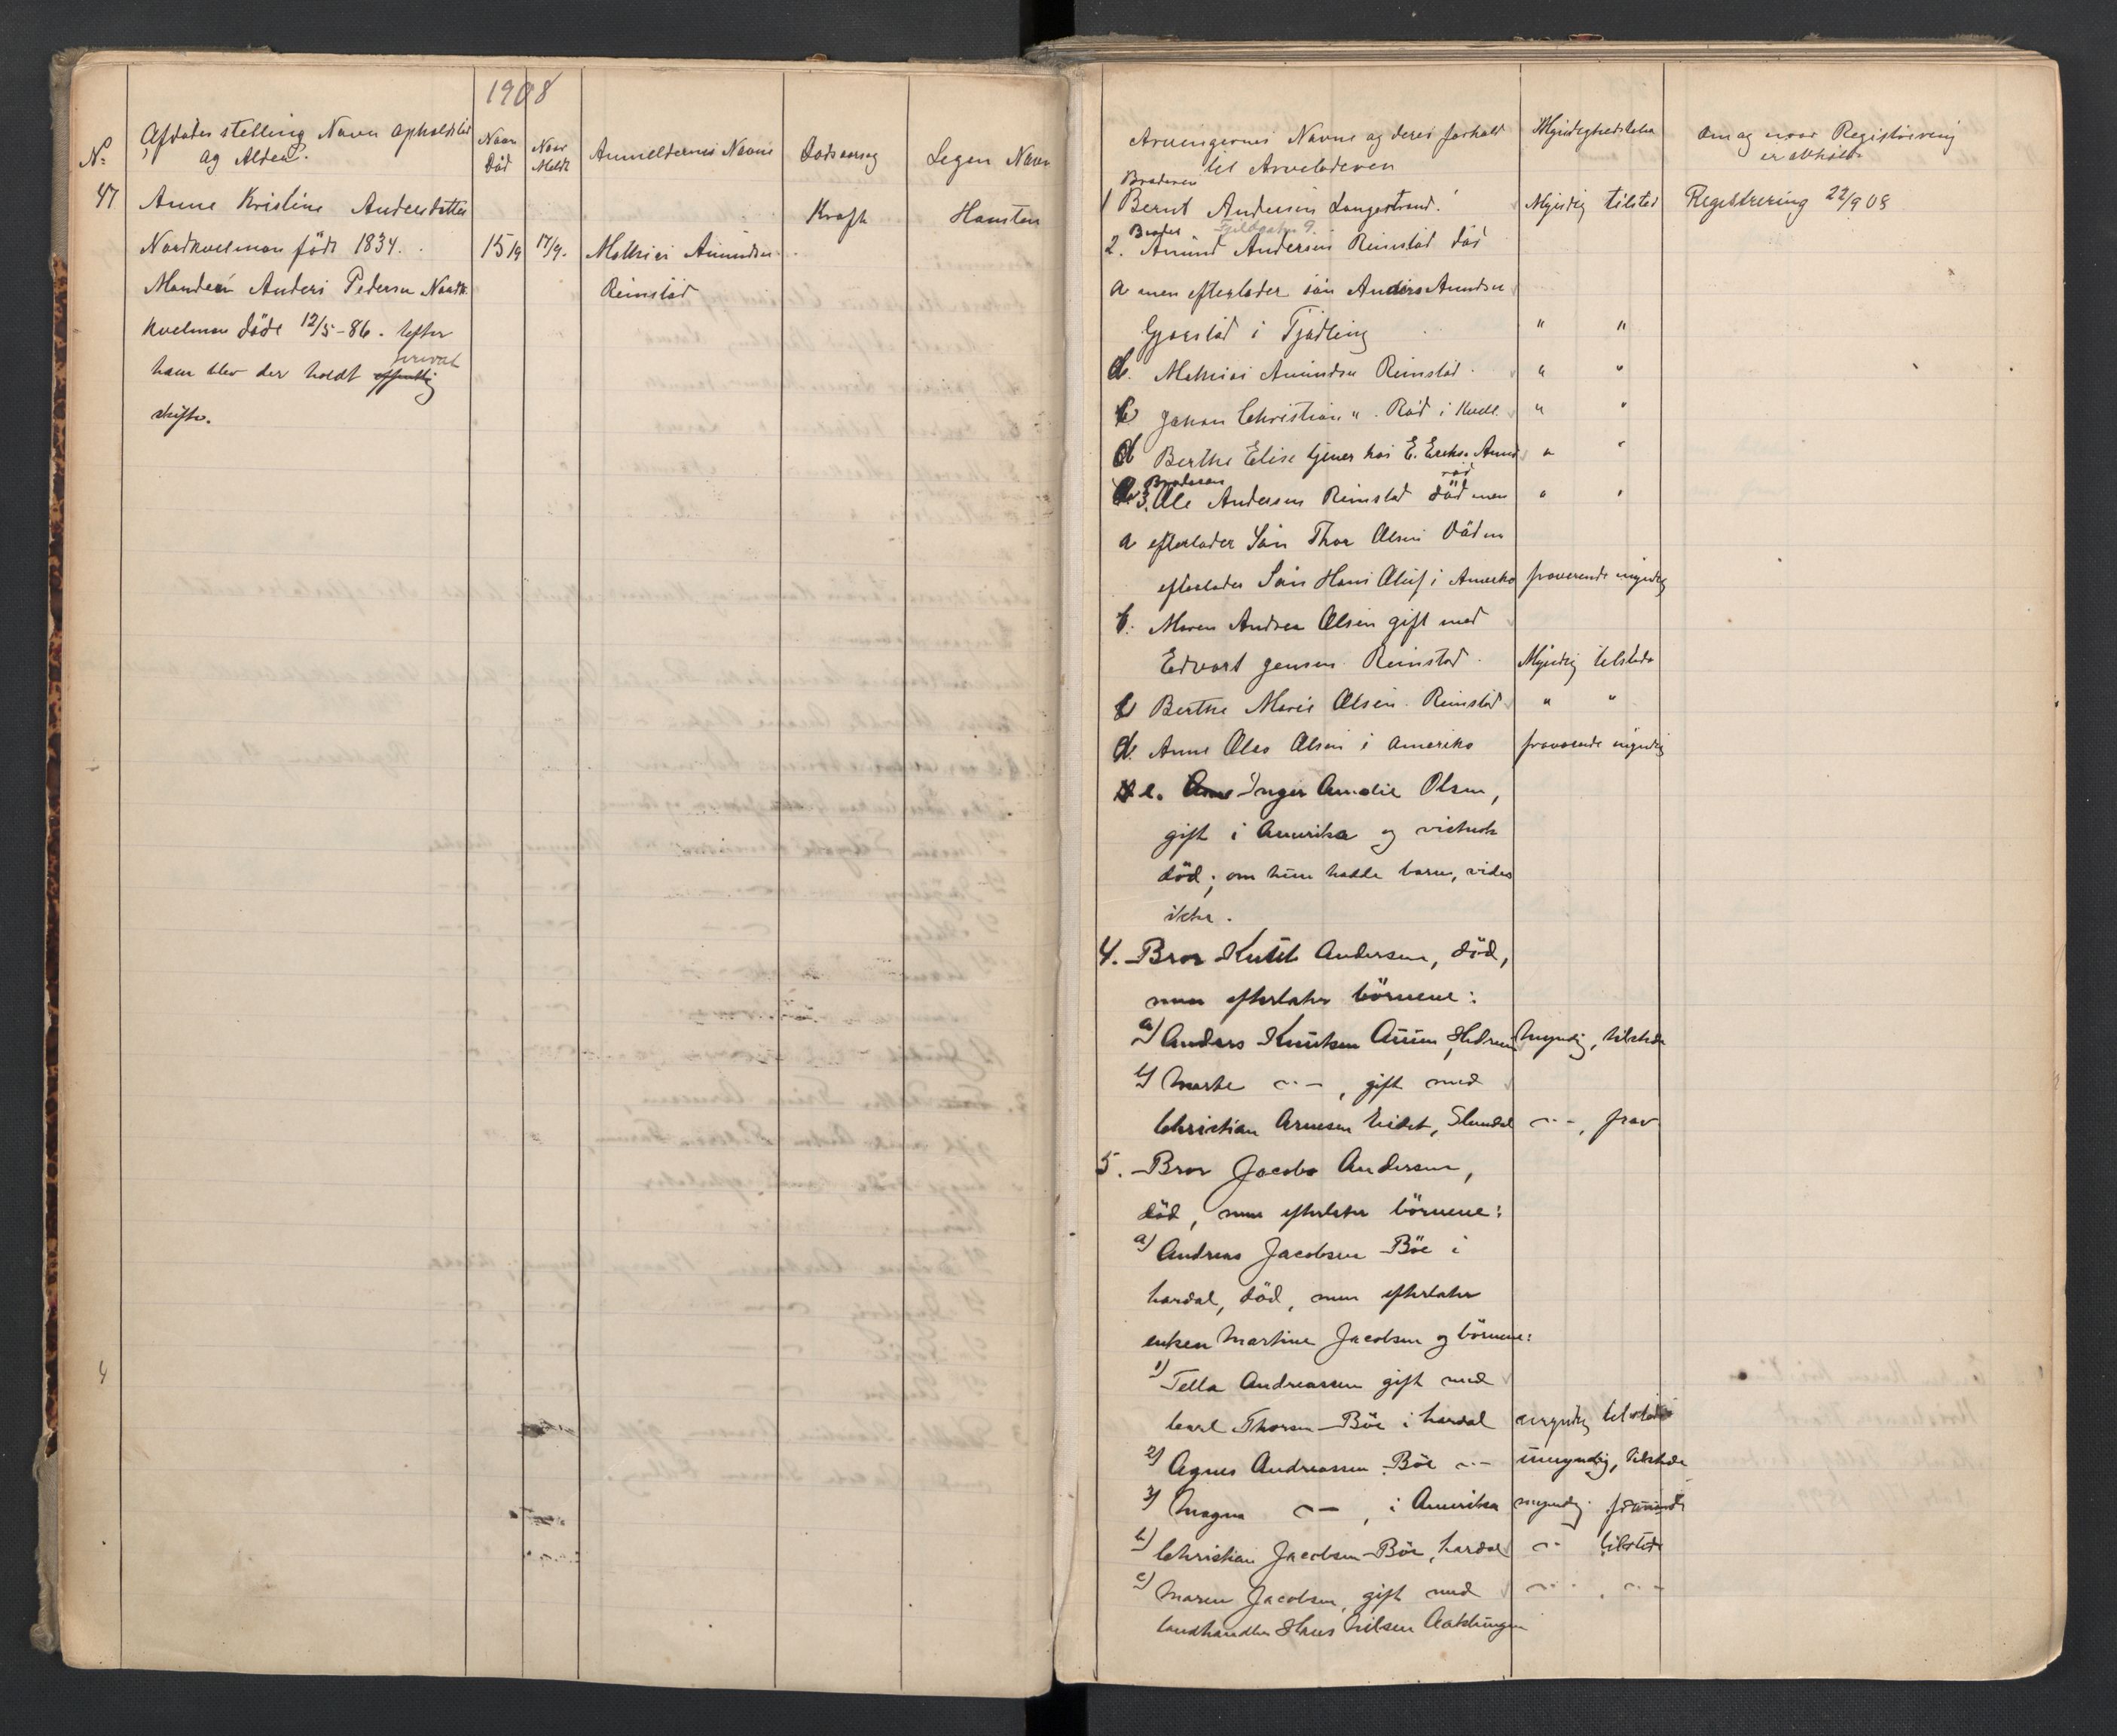 1908
No
Afdødes stilling Navn opholdsted
og Alder.
Naar
Død
Naar
Meldt
Anmeldernes Navne
Dødsaarsag
Legens Navn
47
Anne Kristine Andersdatter
Nordkvelmon födt 1834.
15/9
17/9.
Mathias Amundsen
Kræft
Hansten
Manden Anders Pedersen Nordk
Reinstad
kvelmon döde 12/5-86. Efter
ham blev der holdt offentlig privat
skifte.
4
Arvingernes Navne og deres forhold
til Arveladeren
Myndighedstaler
om og naar Registrering
er afholdt
Broderen
1 Bernt Andersen Langestrand.
Myndig tilsted
Registrering 22/9 08
Fjeldgaten 9.
Broder
2. Amund Andersen Reinstad död
a men efterlader sön Anders Amundsen
Gjerstad i Tjødling
" "
b. Mathias Amundsen Reinstad.
" "
c Johan Christian " . Röd i Kvel.
" "
d Berthe Elise tjener hos E. Eriks. Amund
röd
" "
Broderen
3. Ole Andersen Reinstad död men
" "
a efterlader Sön Thor Olsen Död m
efterlader Sön Hans Oluf i Amerika
fraverende myndig
b. Maren Andrea Olsen gift med
Edvart Jensen Reinstad.
Myndig tilstede
c Berthe Marie Olsen. Reinstad
" "
d. Anne Olea Olsen i Amerika
fraverende myndig
e. Inger Amalie Olsen,
gift i Amerika og vistnok
död; om hun hadde barn, vides
ikke.
4. Bror Knut Andersen, död,
men efterlater börnene:
a) Anders Knutsen Auen, Hedrum
Myndig, tilstede
b) Marte -"-, gift med
Christian Arnesen Eidet, Slemdal
-"-, frav
5. Bror Jacob Andersen,
död, men efterlater börnene:
a) Andreas Jacobsen Böe i
Lardal, död, men efterlater
enken Martine Jacobsen og börnene:
1) Tella Andreassen gift med
Carl Thorsen Böe i Lardal
myndig tilstede
2) Agnes Andreassen Böe -"-
umyndig, tilstede
3) Magna -"-, i Amerika
myndig. fraværende
b) Christian Jacobsen Böe, Lardal
-"- tilstede
c) Maren Jacobsen, gift med
-"- . -"-
Landhandler Hans Nilsen